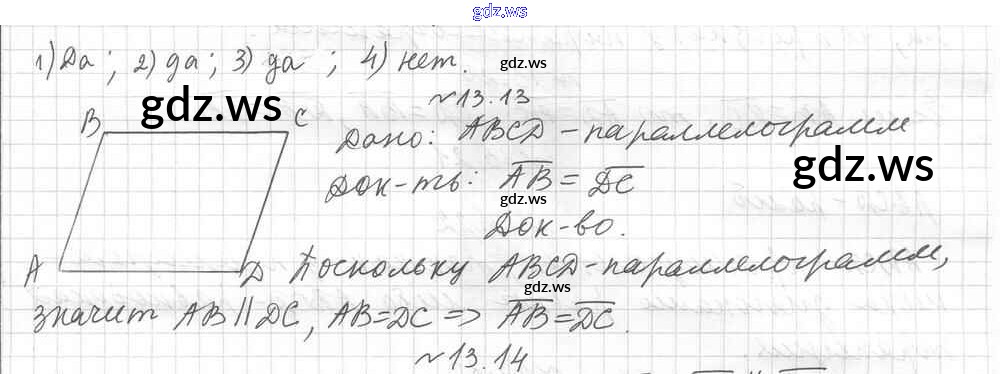 gdz.ws
1) Да; 2) да; 3) да; 4) нет.
gdz.ws
№13.13
gdz.ws
B C
Дано: ABCD - параллелограмм
gdz.ws
Док-ть: AB = DC
gdz.ws
Док-во.
A D Поскольку ABCD - параллелограмм,
gdz.ws
значит AB || DC, AB = DC => AB = DC.
№13.14